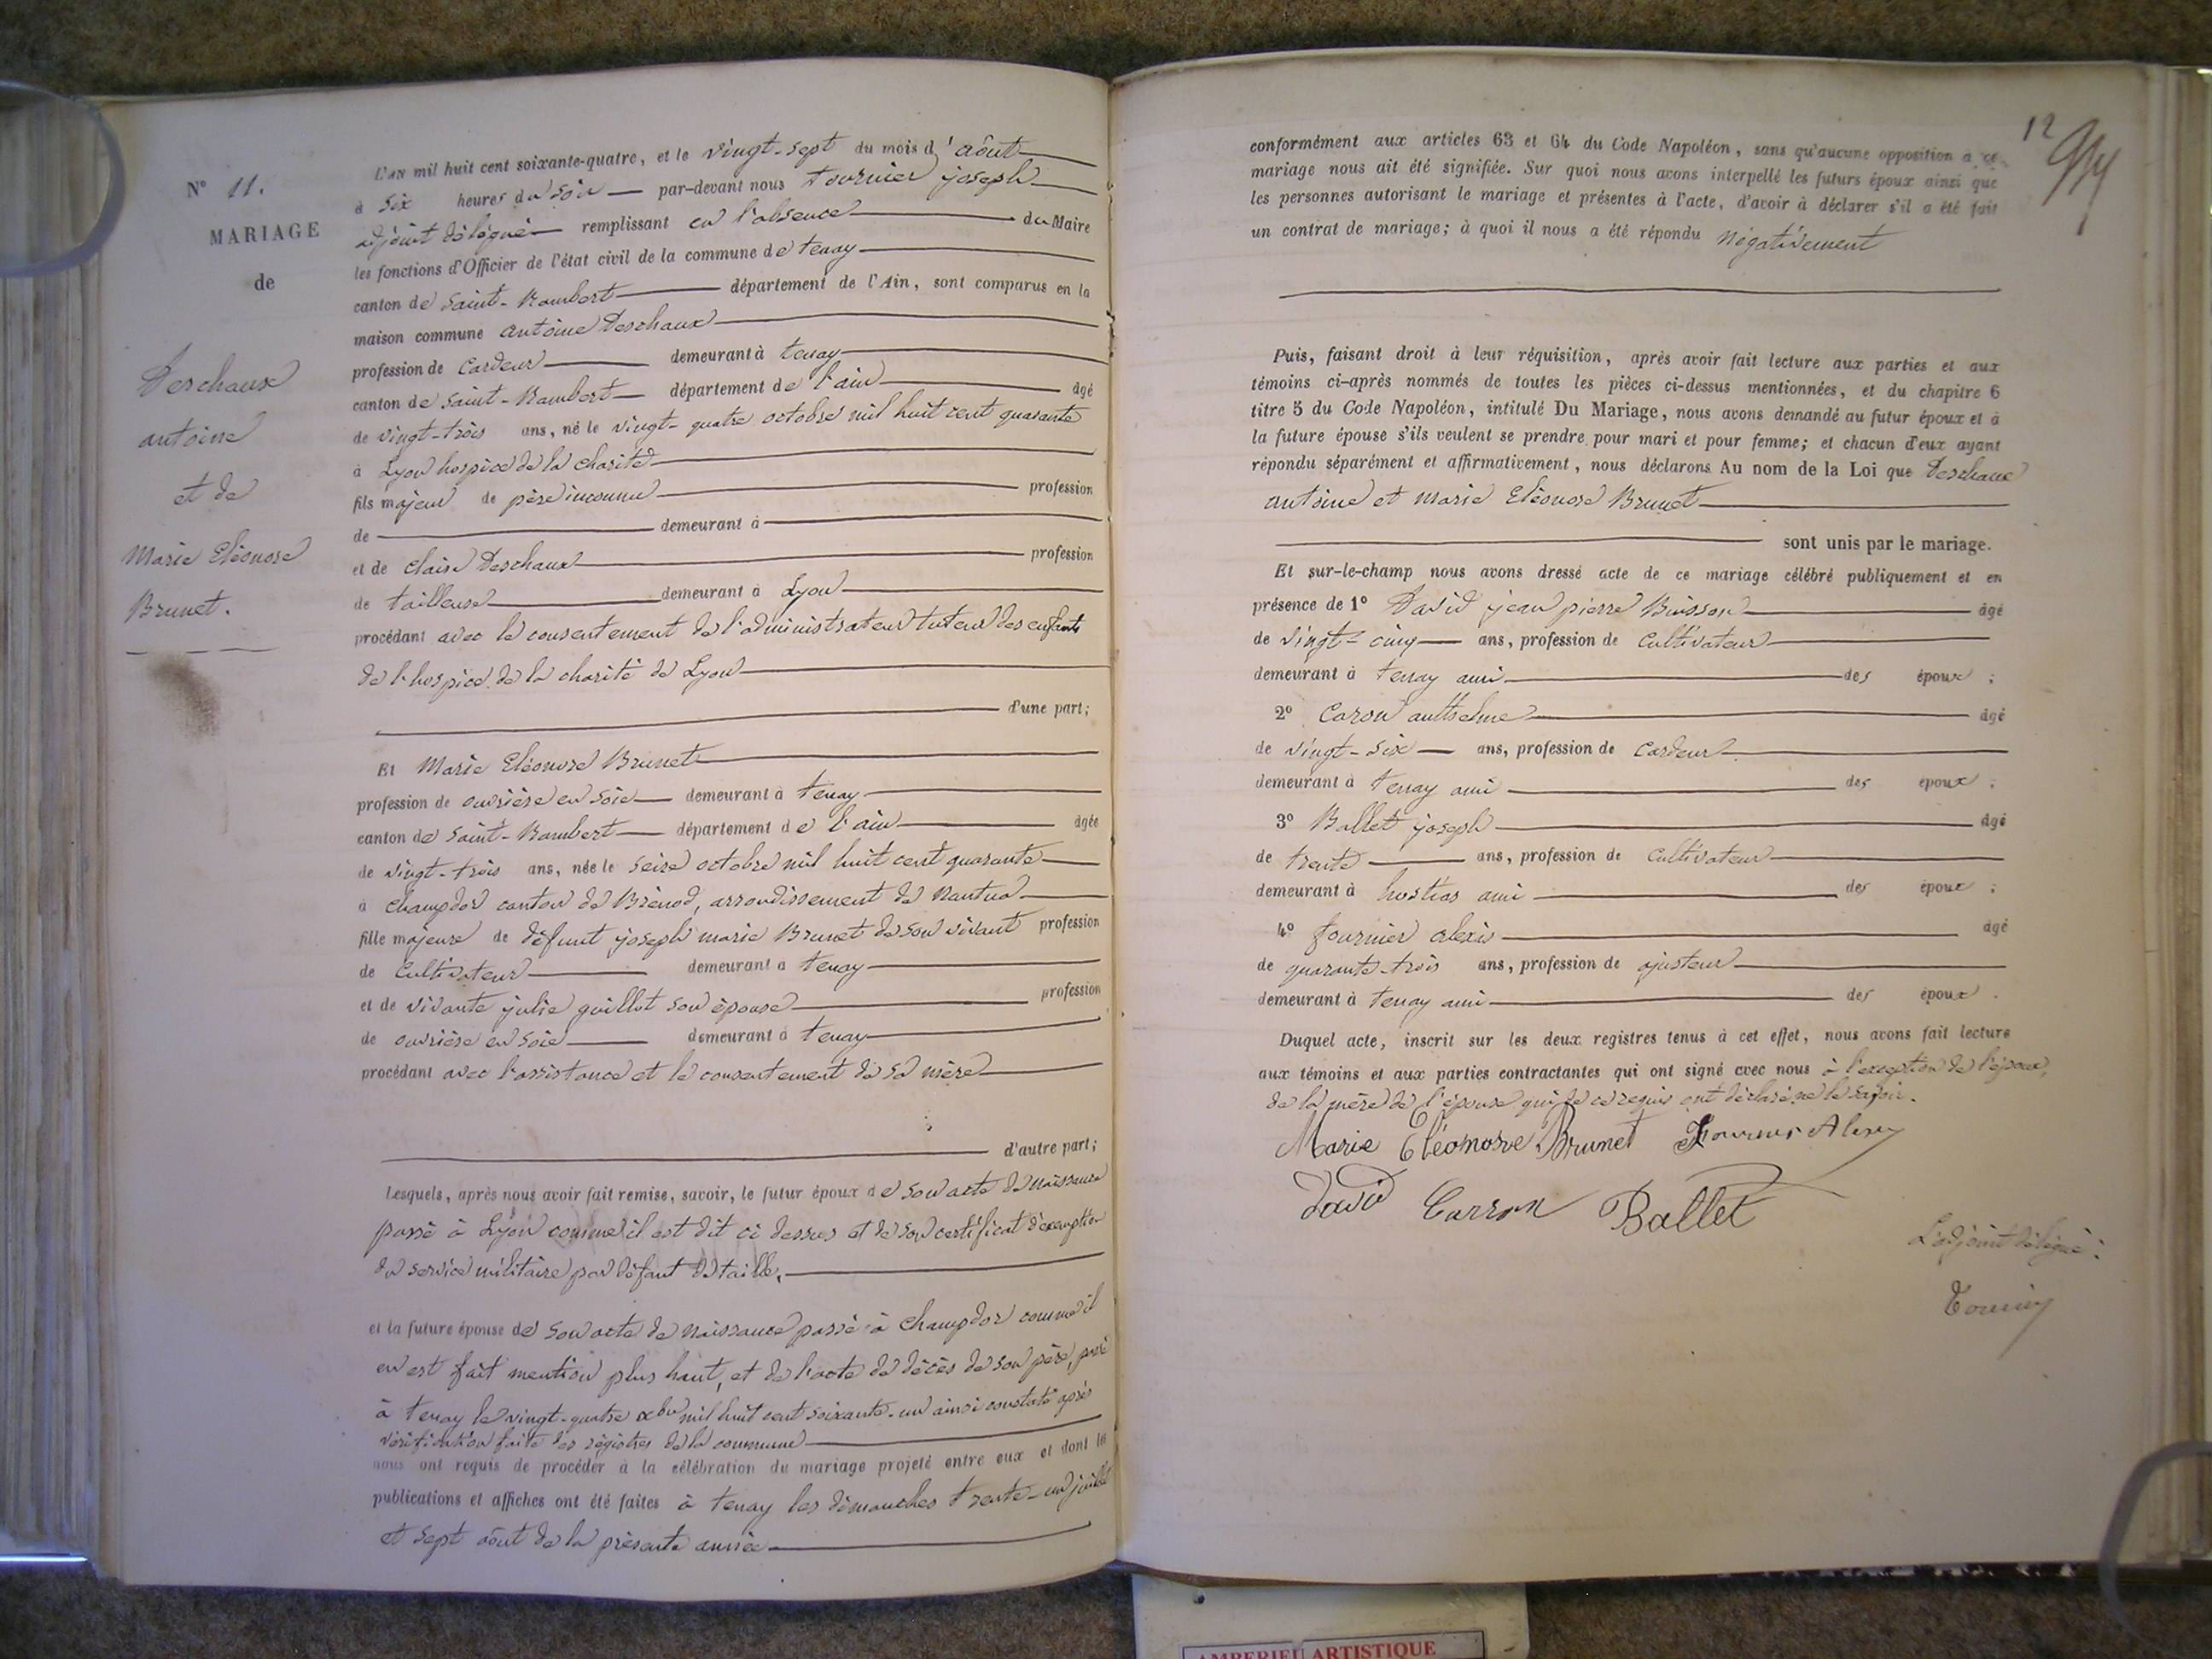 N° 11.
MARIAGE
de
Deschaux
antoine
et de
Marie Eléonore
Brunet.
L'AN mil huit cent soixante-quatre, et le vingt-sept du mois d'août
à six heures du soir par-devant nous tournier joseph
adjoint délégué remplissant en l'absence du Maire
les fonctions d'Officier de l'état civil de la commune de tenay
canton de saint-Rambert département de l'Ain, sont comparus en la
maison commune antoine Deschaux
profession de cardeur demeurant à tenay
canton de saint-Rambert département de l'ain âgé
de vingt-trois ans, né le vingt-quatre octobre mil huit cent quarante
à Lyon hospice de la charité
fils majeur de père inconnu profession
de demeurant à
et de claire Deschaux profession
de tailleuse demeurant à Lyon
procédant avec le consentement de l'administrateur tuteur des enfants
de l'hospice de la charité de Lyon
d'une part;
Et Marie Eléonore Brunet
profession de ouvrière en soie demeurant à tenay
canton de saint-Rambert département de l'ain âgée
de vingt-trois ans, née le seize octobre mil huit cent quarante
à champdor canton de Brénod, arrondissement de Nantua
fille majeure de défunt joseph marie Brunet de son vivant profession
de cultivateur demeurant à tenay
et de vivante julie guillot son épouse profession
de ouvrière en soie demeurant à tenay
procédant avec l'assistance et le consentement de sa mère
d'autre part;
Lesquels, après nous avoir fait remise, savoir, le futur époux de son acte de naissance
passé à Lyon comme il est dit ci dessus et de son certificat d'exemption
du service militaire par défaut de taille.
et la future épouse de son acte de naissance passé à champdor comme il
en est fait mention plus haut, et de l'acte de décès de son père, passé
à tenay le vingt-quatre xbre mil huit cent soixante-un ainsi constaté après
vérification faite des régistres de la commune
nous ont requis de procéder à la célébration du mariage projeté entre eux et dont les
publications et affiches ont été faites à tenay les dimanches trente-un juillet
et sept août de la présente année
12
conformément aux articles 63 et 64 du Code Napoléon, sans qu'aucune opposition à ce
mariage nous ait été signifiée. Sur quoi nous avons interpellé les futurs époux ainsi que
les personnes autorisant le mariage et présentes à l'acte, d'avoir à déclarer s'il a été fait
un contrat de mariage; à quoi il nous a été répondu négativement
Puis, faisant droit à leur réquisition, après avoir fait lecture aux parties et aux
témoins ci-après nommés de toutes les pièces ci-dessus mentionnées, et du chapitre 6
titre 5 du Code Napoléon, intitulé Du Mariage, nous avons demandé au futur époux et à
la future épouse s'ils veulent se prendre pour mari et pour femme; et chacun d'eux ayant
répondu séparément et affirmativement, nous déclarons Au nom de la Loi que Deschaux
antoine et marie Eléonore Brunet
sont unis par le mariage.
Et sur-le-champ nous avons dressé acte de ce mariage célébré publiquement et en
présence de 1° David jean pierre Buisson âgé
de vingt-cinq ans, profession de cultivateur
demeurant à tenay ami des époux ;
2° Caron anthelme âgé
de vingt-six ans, profession de cardeur
demeurant à tenay ami des époux ;
3° Ballet joseph âgé
de trente ans, profession de cultivateur
demeurant à hostias ami des époux ;
4° fournier alexis âgé
de quarante-trois ans, profession de ajusteur
demeurant à tenay ami des époux .
Duquel acte, inscrit sur les deux registres tenus à cet effet, nous avons fait lecture
aux témoins et aux parties contractantes qui ont signé avec nous à l'exception de l'époux,
de la mère de l'épouse qui de ce requis ont déclaré ne le savoir.
Marie Eléonore Brunet Fournier Alexis
David Carron Ballet
L'adjoint délégué :
AMBERIEU ARTISTIQUE